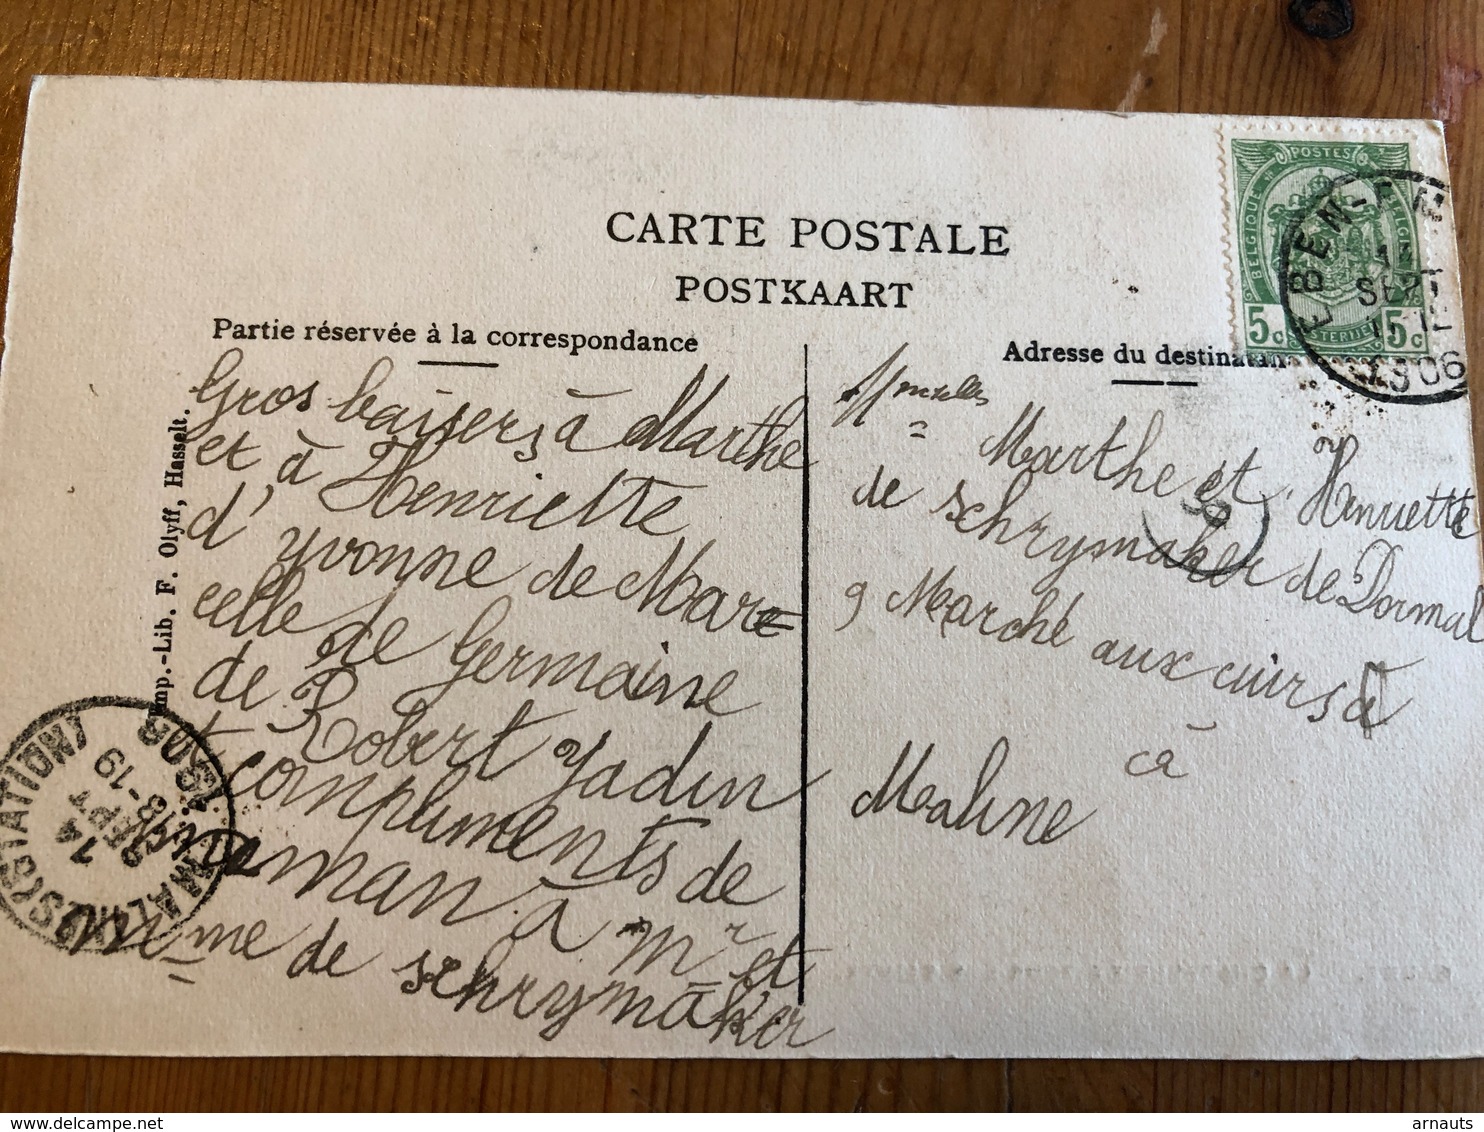 CARTE POSTALE
POSTKAART
Partie réservée à la correspondance
Gros baisers à Marthe
et à Henriette
d'Yvonne de Mar=
celle de Germaine
de Robert Jadin
et compliments de
maman à Mr et
Mme de Schrymaker
Adresse du destinatai
Mmeselles
Marthe et Henriette
de Schrymaker de Dormal
9 Marché aux cuirs
à
Maline
Imp.-Lib. F. Olyff, Hasselt.
POSTES
BELGIQUE
5c 5c
EBEN-EM
SEPT
1906
MALINES (STATION)
14
SEPT
18-19
arnauts